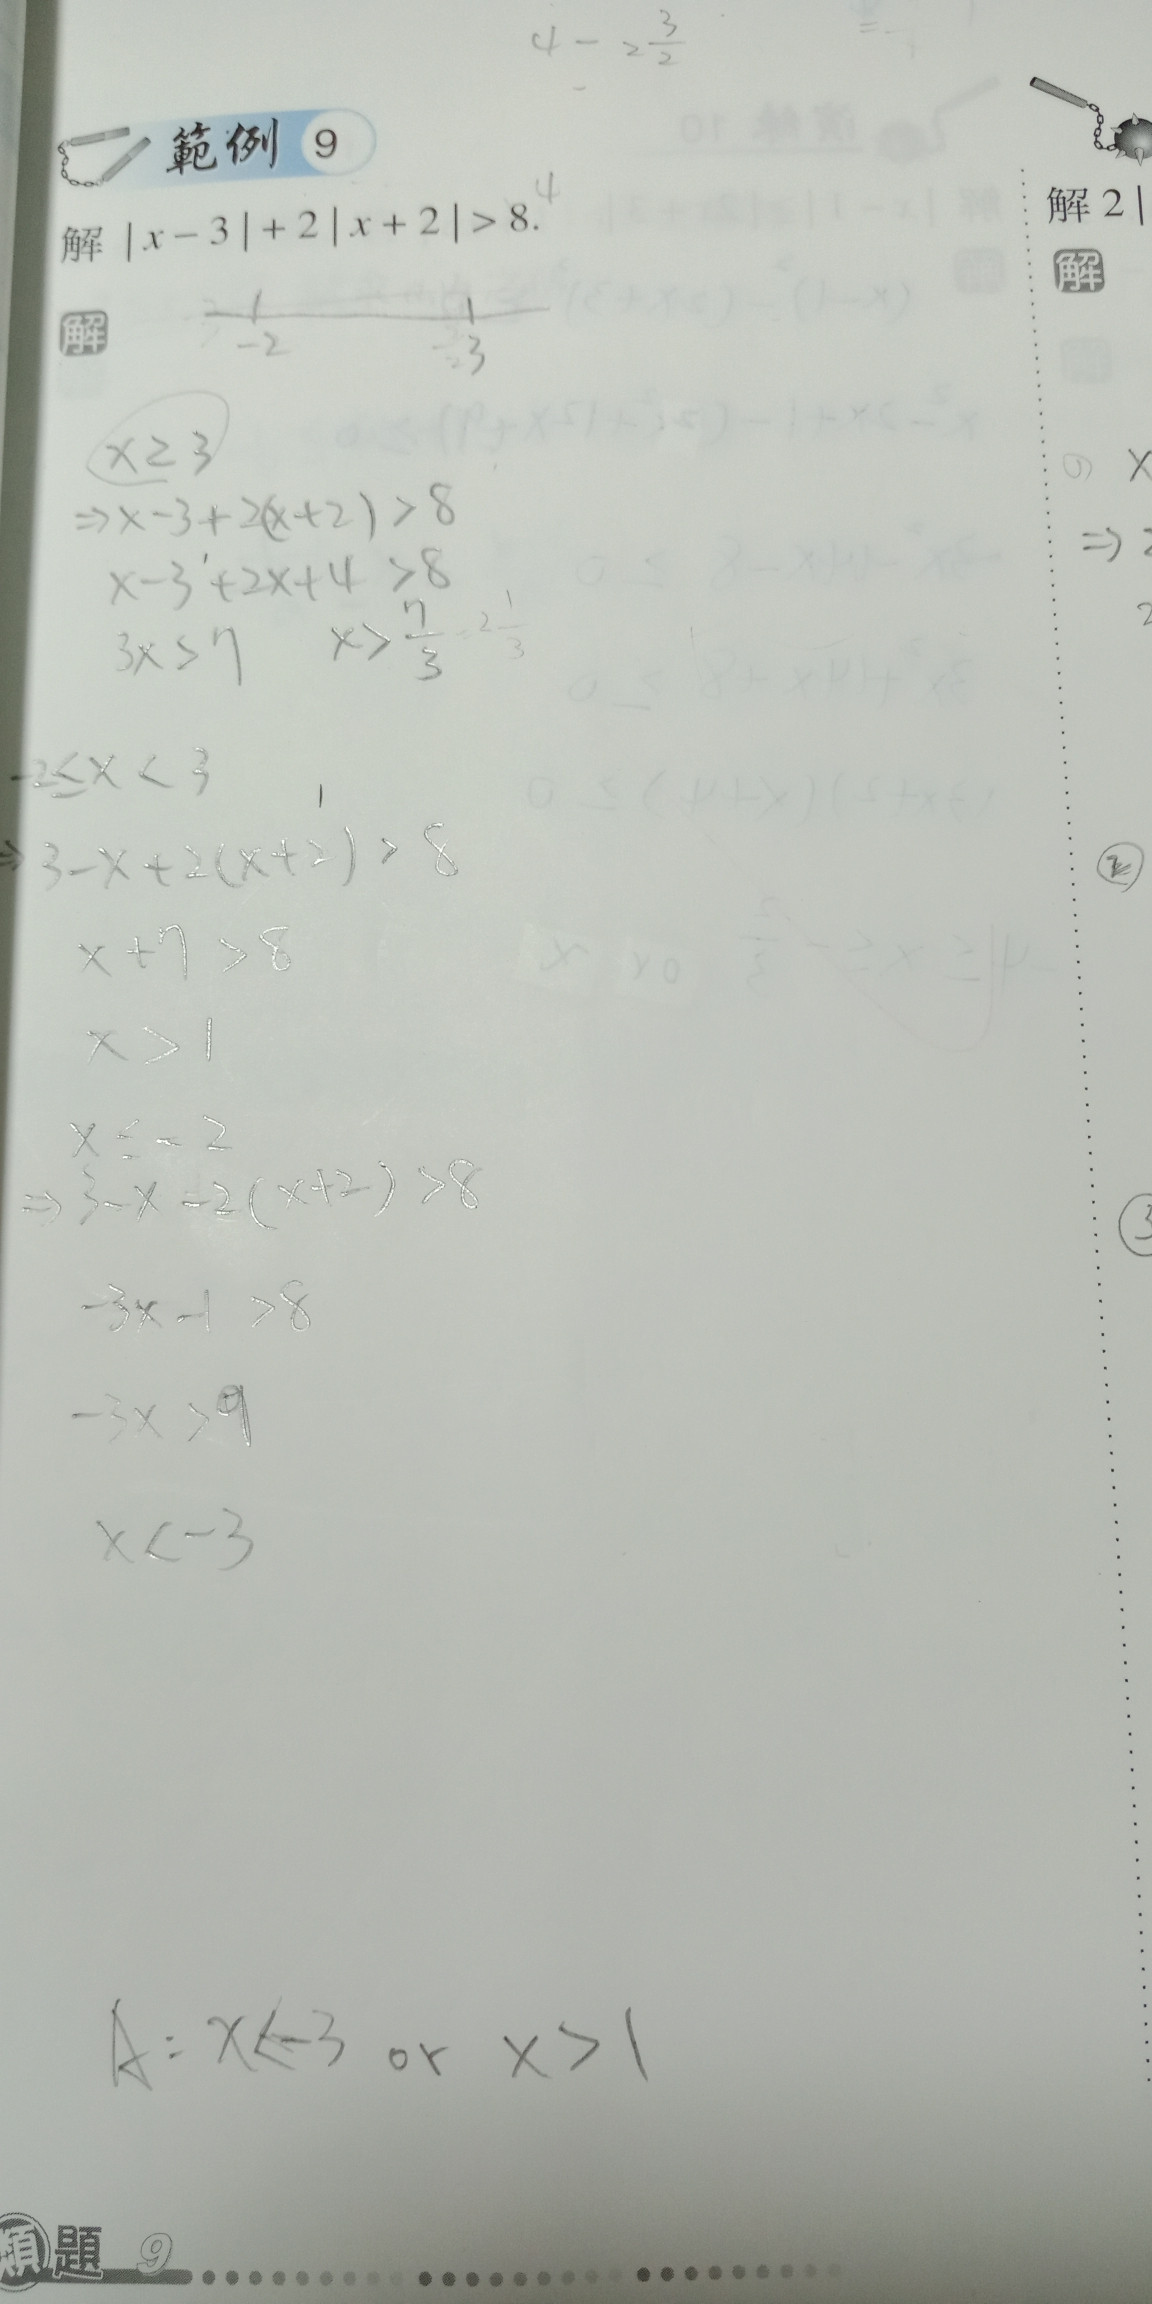 4 - 2 3/2
範例 9
解 |x-3|+2|x+2|>8. 4
解
-2 3
x≥3
⇒x-3+2(x+2)>8
x-3+2x+4>8
3x>7 x>7/3=2 1/3
-2≤x<3
⇒3-x+2(x+2)>8
x+7>8
x>1
x≤-2
⇒3-x-2(x+2)>8
-3x-1>8
-3x>9
x<-3
A=x<-3 or x>1
類題 9
解 2|
解
x
⇒2
2
②
③